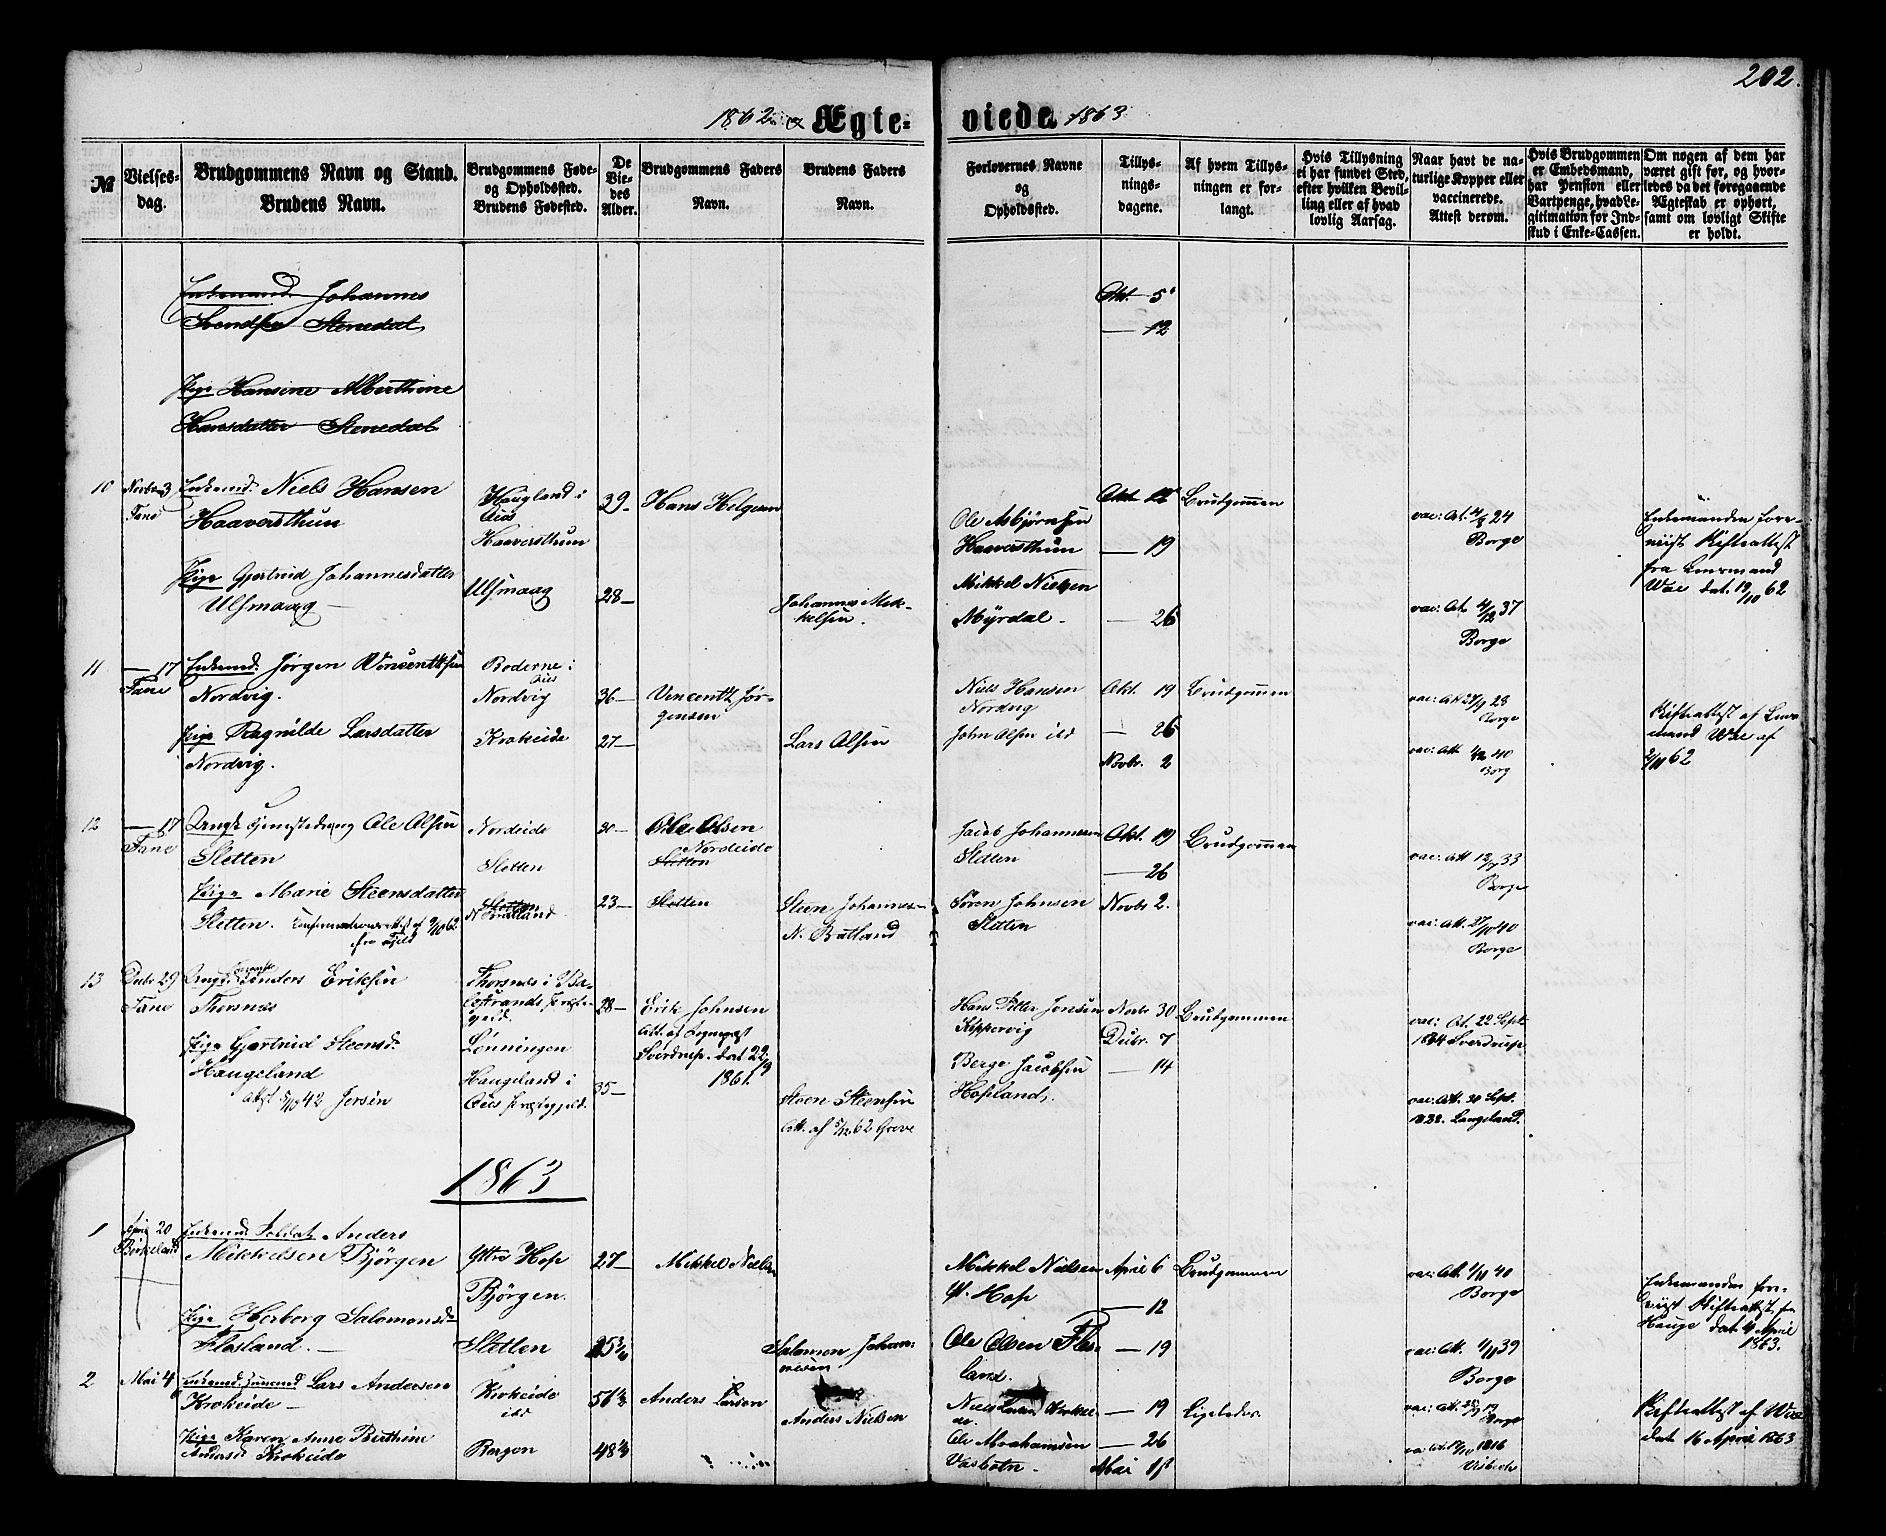 202.
1862 & Ægte= viede 1863
№
Vielses-
dag.
Brudgommens Navn og Stand.
Brudens Navn.
Brudgommens Føde-
og Opholdssted.
Brudens Fødested.
De
Vie-
des
Alder.
Brudgommens Faders
Navn.
Brudens Faders
Navn.
Forlovernes Navne
og
Opholdssted.
Tillys-
nings-
dagene.
Af hvem Tillys-
ningen er for-
langt.
Hvis Tillysning
ei har fundet Sted,
efter hvilken Bevil-
ling eller af hvad
lovlig Aarsag.
Naar havt de na-
turlige Kopper eller
vaccinerede.
Attest derom.
Hvis Brudgommen
er Embedsmand,
har Pension eller
Vartpenge, hvad Le-
gitimation for Ind-
skud i Enke-Cassen.
Om nogen af dem har
været gift før, og hvor-
ledes da det foregaaende
Ægteskab er ophørt,
samt om lovligt Skifte
er holdt.
Enkemand Johannes
Svendsen Stenedal
Okt. 5
— 12
Pige Hansine Alberthine
Hansdatter Stenedal
10
Novbr 3
Fane
Enkemd. Niels Hansen
Haaversthun
Haugland i
Øus
Haaversthun
39 —
Hans Helgesen
Ole Asbjørnsen
Haaversthun
Okt 12
— 19
Brudgommen
vac: At. 24
Borge
Enkemanden fore-
viist Skifteattest
fra Lensmand
Wae dat. 19/10 62
Pige Gjertrud Johannesdatter
Ulsmaag —
Ulsmaag
28 —
Johannes Mik-
kelsen.
Mikkel Nielsen
Myrdal —
— 26
vac: At. 4/12 37
Borge
11
— 17
Fane
Enkemd. Jørgen Vincentsen
Nordvig.
Boderne i
Øus
Nordvig
36 —
Vincentz Jør-
gensen
Niels Hansen
Nordvig
Okt. 19
Brudgommen
vac: Att 28
Borge
Skifteattest af Lens-
mand Wae af
62
Pige Ragnilde Larsdatter
Nordvig.
Krokeide
27 —
Lars Olsen
John Olsen ibd
— 26
Novbr. 2
vac: Att 40
Borg
12
— 17
Fane
Ungk. Ole Olsen
Sletten
Nordeide
Sletten
30 —
Ole Olsen
Nordeide
Sletten
Jacob Johannesen
Sletten
Okt. 19
— 26
Brudgommen
vac: Att 12/7 33
Borge
Pige Marie Steensdatter
Sletten. Confirmationsattest af 9/10 62
fra Fjeld
Sletten
23 —
Sletten
Steen Johannes-
N. Bratland
Søren Johnsen
Sletten
Novbr 2.
vac: Att. 27/10 40
Borge
13
Decbr 29
Fane
Ungk. Anders Eriksen
Thorsnes
Thorsnes i Ba-
lestrands Præste-
gjeld.
28 —
Erik Johnsen
Att. af Sognepræst
Sverdrup. dat 22/9
1861.
Hans Peter Jensen
Kippervig
Novbr 30
Decbr. 7
Brudgommen
vac: At. 22 Sept
1834 Sverdrup
Pige Gjertrud Steensd.
Haugeland
Attest 42 Jersin
Lønningen
Haugeland i
Øus Præstegjeld.
35 —
Steen Steensen
Att. af 62 Greve
Berge Jacobsen
Hopland.
— 14
vac: Att. 30 Sept.
1838. Langeland.
1863
1
April 20
Birkeland
Enkemd Soldat Anders
Mikkelsen Bjørgen
Yttre Hop
Bjørgen.
27 —
Mikkel Nielsen
Mikkel Nielsen
Y. Hop
April 6
— 12
Brudgommen
vac: Att. 40
Borge
Enkemanden fore-
viist Skifteattest fra
Hauge dat 4 April
1863.
Pige Herborg Salomonsd.
Flesland. —
Sletten
25
Salomon Johan-
nesen.
Ole Olsen Fles-
land.
— 19
vac: Att. 39
Borge
2
Mai 4
Enkemd Lars Andersen
Krokeide —
Krokeide
ibd
56
Anders Larsen
Anders Nielsen
Niels Larsen Krokei-
de.
— 19
Ligeledes.
vac: Att.
Borge
Skifteattest af Wae
dat 16 April 1863
Pige Karen Anne Berthine
Andersd Krokeide
Bergen
48
Ole Abrahamsen
Vasbotn —
— 26
Mai
1816